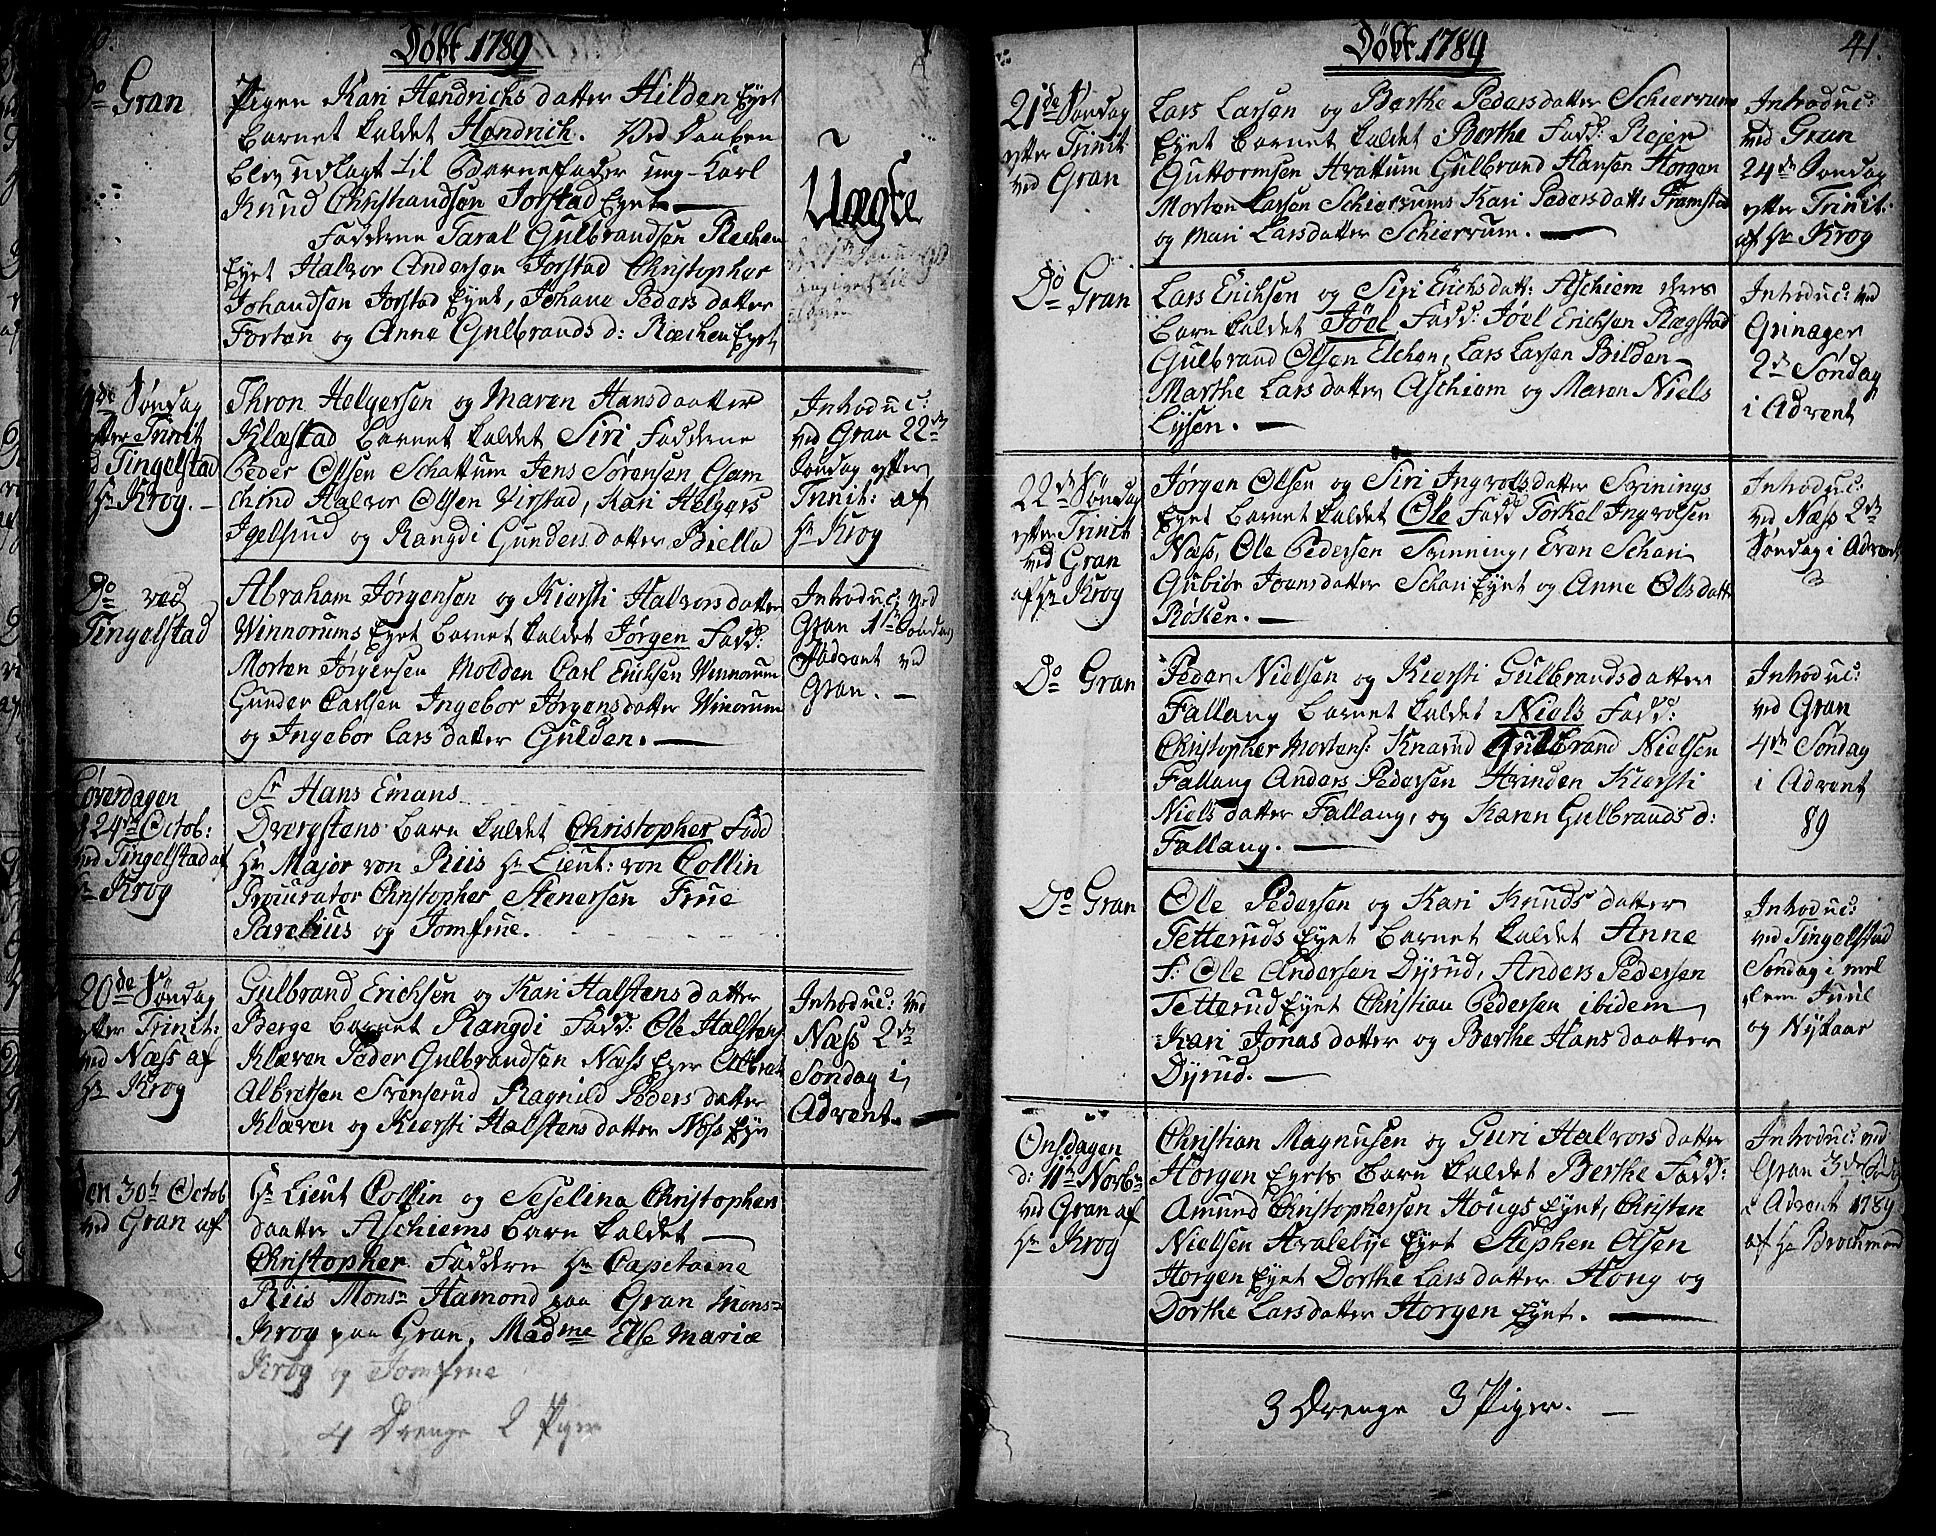 Døbt 1789
Do Gran
Pigen Kari Hendrichs datter Hilden Eyet
Barnet kaldet Hendrich. Ved Daaben
blev udlagt til Barnefader ung-Karl
Knud Christiandsøn Jorstad Eyet
Fadderne Taral Gulbrandsen Rechen
Eyet Halvor Andersen Jorstad Christopher
Johandsen Jorstad Eyet, Johane Peders datter
Forten og Anne Gulbrands d: Ræchen Eyet
Uægte
Søndag
efter Trinit
Tingelstad
Hr Krog.
Thron Helgersen og Maren Hansdaatter
Klæstad barnet kaldet Siri Fadderne
Peder Olsen Schattum Jens Sørensen Gam
Halvor Olsen Virstad, Kari Helgers
Igelsrud og Rangdi Gunders datter Biella
Introduc:
ved Gran 22de
Søndag efter
Trinit: af
Hr Krog
Do ved
Tingelstad
Abraham Jørgensen og Kiersti Halvors datter
Winnorums Eyet barnet kaldet Jørgen Fadd:
Morten Jørgensen Molden Carl Erichsen Winnorum
Gunder Larsen Ingebor Jørgens datter Winorum
og Ingebor Lars datter Gulden.
Introduc: ved
Gran 1te Søndag
Advent ved
Gran.
Løverdagen
24de Octob:
ved Tingelstad af
Hr Krog
Sr Hans Emans
Dvergstens barn kaldet Christopher Fadd
Hr Major von Riis Hr Lieut: von Collin
Procurator Christopher Stenersen Frue
Parelius og Jomfrue.
20de Søndag
efter Trinit:
ved Næss af
Hr Krog
Gulbrand Erichsen og Kari Halstens datter
Berge barnet Rangdi Fadd: Ole Halstens
Klæven Peder Gulbrandsen Næss Eger Olbret
Albretsen Svenserud Ragnild Peders datter
Klæven og Kiersti Halstens datter Noss Eye
Introduc: ved
Næss 2de
Søndag i
Advent.
Den 30te Octob
ved Gran af
Hr Lieut Collin og Seselina Christophen
daatter Aschiems barn kaldet
Christopher Faddern Hr Capitaene
Riis Monsr Hamond paa Gran Monsr
Krog paa Gran, Madme Else Mariæ
Krog og Jomfrue
4 Drenge 2 Piger
Døbt 1789
41.
21de Søndag
efter Trinit:
ved Gran
Lars Larsen og Barthe Pedersdatter Schierrum
Eyet barnet kaldet Berthe Fadd: Rejer
Guttormsen Hvattum Gulbrand Hansen Horgen
Morten Larsen Schierrums Kari Pedersdatts Framstad
og Mari Larsdatter Schierrum.
Introduc:
ved Gran
24de Søndag
efter Trinit:
af Hr Krog
Do Gran
Lars Erichsen og Siri Erichsdatt: Aschiem deres
barn kaldet Jøel Fadd: Jøel Erichsen Rægstad
Gulbrand Olsen Elchen, Lars Larsen Bilden
Marthe Lars datter Aschiem og Maren Niels
Lysen.
Introduc: ved
Grinager
2de Søndag
i Advent
22de Søndag
efter Trinit
ved Gran
af Hr Krog
Jørgen Olsen og Siri Ingvolsdatter Svinings
Eyet barnet kaldet Ole Fadd Torkel Ingvolsen
Næss, Ole Pedersen Svinning, Even Schari
Gubiør Joansdatter Schari Eyet og Anne Olsdatt
Røsten.
Introduc:
ved Næss 2de
Søndag i Advent
Do Gran
Peder Nielsen og Kiersti Gulbrandsdatter
Fallang barnet kaldet Niels Fadd:
Christopher Mortens: Knarud Gulbrand Nielsen
Fallang Anders Pedersen Hvinden Kiersti
Niels datter Fallang, og Karen Gulbrands d:
Fallang.
Introduc:
ved Gran
4de Søndag
i Advent
89
Do Gran
Ole Pedersen og Kari Knuds datter
Tetteruds Eyet barnet kaldet Anne
F: Ole Andersen Dyrud, Anders Pedersen
Tetterud Eyet Christian Pedersen ibidem
Kari Jonas datter og Berthe Hans daatter
Dyrud.
Introduc:
ved Tingelstad
Søndag i mel
lem Juul
og Nytaar
Onsdagen
d: 11te Novbr
ved Gran af
Hr Krog
Christian Magnusen og Guri Halvors datter
Horgen Eyets barn kaldet Berthe Fadd:
Amund Christophersen Hougs Eyet, Christen
Nielsen Hvalebye Eyet Stephen Olsen
Horgen Eyet Dorthe Lars datter Houg og
Dorthe Larsdatter Horgen Eyet.
Introduc: ved
Gran 3de Søndag
i Advent 1789
af Hr Brochmand
3 Drenge 3 Piger.